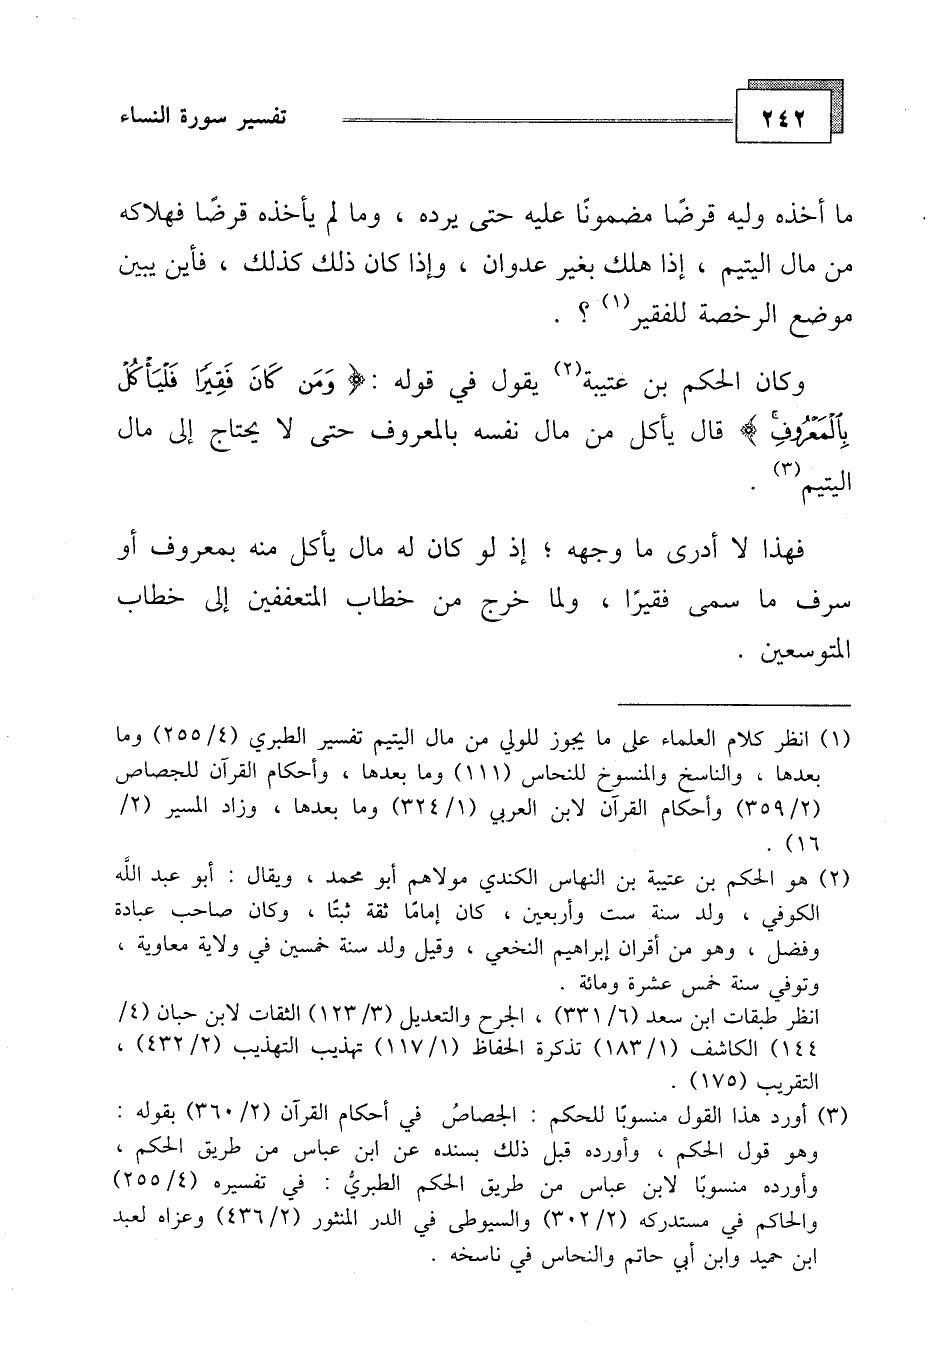 ٢٤٢ تفسير سورة النساء
ما أخذه وليه قرضًا مضمونًا عليه حتى يرده ، وما لم يأخذه قرضًا فهلاكه
من مال اليتيم ، إذا هلك بغير عدوان ، وإذا كان ذلك كذلك ، فأين يبين
موضع الرخصة للفقير(١) ؟ .
وكان الحكم بن عتيبة(٢) يقول في قوله : ﴿ وَمَن كَانَ فَقِيرًا فَلْيَأْكُلْ
بِالْمَعْرُوفِ ﴾ قال يأكل من مال نفسه بالمعروف حتى لا يحتاج إلى مال
اليتيم(٣) .
فهذا لا أدرى ما وجهه ؛ إذ لو كان له مال يأكل منه بمعروف أو
سرف ما سمى فقيرًا ، ولما خرج من خطاب المتعففين إلى خطاب
المتوسعين .
(١) انظر كلام العلماء على ما يجوز للولي من مال اليتيم تفسير الطبري (٤/ ٢٥٥) وما
بعدها ، والناسخ والمنسوخ للنحاس (١١١) وما بعدها ، وأحكام القرآن للجصاص
(٢/ ٣٥٩) وأحكام القرآن لابن العربي (١/ ٣٢٤) وما بعدها ، وزاد المسير (٢/
١٦) .
(٢) هو الحكم بن عتيبة بن النهاس الكندي مولاهم أبو محمد ، ويقال : أبو عبد اللَّه
الكوفي ، ولد سنة ست وأربعين ، كان إمامًا ثقة ثبتًا ، وكان صاحب عبادة
وفضل ، وهو من أقران إبراهيم النخعي ، وقيل ولد سنة خمسين في ولاية معاوية ،
وتوفي سنة خمس عشرة ومائة .
انظر طبقات ابن سعد (٦/ ٣٣١) ، الجرح والتعديل (٣/ ١٢٣) الثقات لابن حبان (٤/
١٤٤) الكاشف (١/ ١٨٣) تذكرة الحفاظ (١/ ١١٧) تهذيب التهذيب (٢/ ٤٣٢) ،
التقريب (١٧٥) .
(٣) أورد هذا القول منسوبًا للحكم : الجصاصُ في أحكام القرآن (٢/ ٣٦٠) بقوله :
وهو قول الحكم ، وأورده قبل ذلك بسنده عن ابن عباس من طريق الحكم ،
وأورده منسوبًا لابن عباس من طريق الحكم الطبريُّ : في تفسيره (٤/ ٢٥٥)
والحاكم في مستدركه (٢/ ٣٠٢) والسيوطى في الدر المنثور (٢/ ٤٣٦) وعزاه لعبد
ابن حميد وابن أبي حاتم والنحاس في ناسخه .